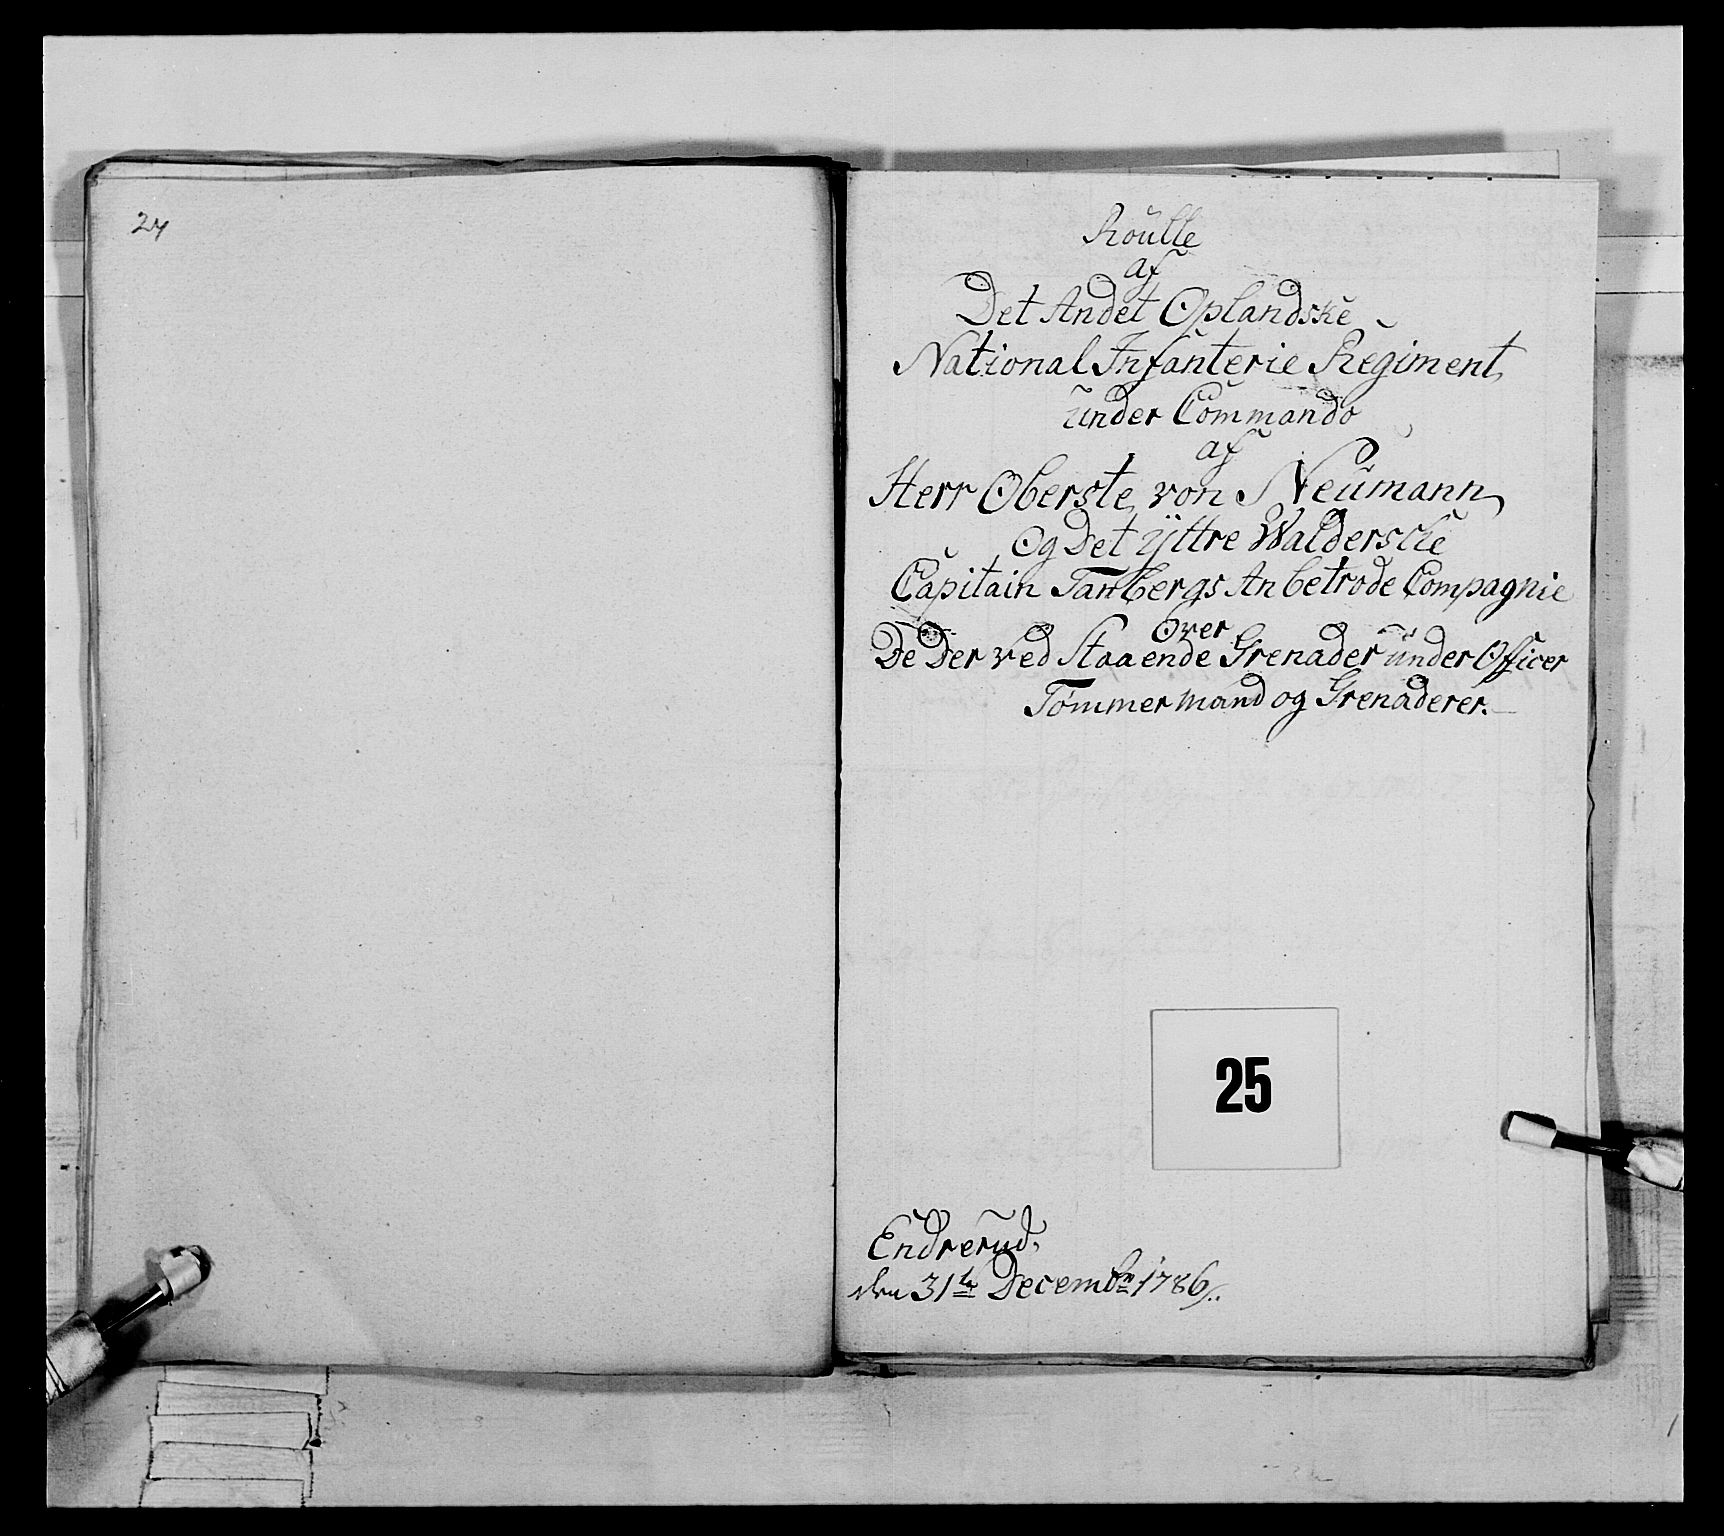 24
Roulle
af
Det Andet Oplandske
National Infanterie Regiment,
under Commando
af
Herr Oberste von Neumann,
Og Det Ÿttre Walderske
Capitain Tambergs Anbetrode Compagnie
Over
De Der ved Staaende Grenader under Officer
Tømmermand og Grenaderer.
25
Endrerud,
den 31te Decembr 1786